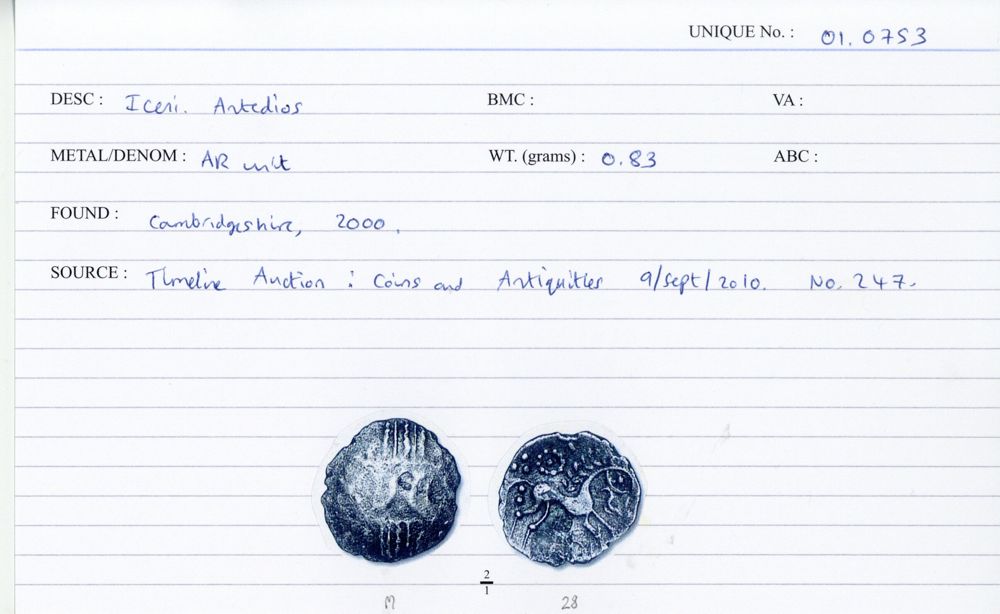 UNIQUE No. : 01.0753
DESC : Iceni. Antedios BMC : VA :
METAL/DENOM : AR unit WT. (grams) : 0.83 ABC :
FOUND : Cambridgeshire, 2000.
SOURCE : Timeline Auction : Coins and Antiquities 9/Sept/2010. No. 247.
2
1
M 28